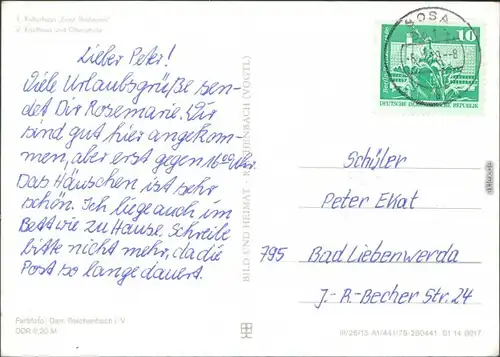 1. Kulturhaus
2. Kaufhaus und Oberschule
Lieber Peter!
Viele Urlaubsgrüße sen-
det Dir Rosemarie. Wir
sind gut hier angekom-
men, aber erst gegen 16.00 Uhr.
Das Häuschen ist sehr
schön. Ich liege auch im
Bett wie zu Hause. Schreibe
bitte nicht mehr, da die
Post so lange dauert.
Farbfoto: Darr, Reichenbach i. V.
DDR 0,20 M
BILD UND HEIMAT REICHENBACH (VOGTL)
ROSA
10
DEUTSCHE DEMOKRATISCHE REPUBLIK
Schüler
Peter Ekat
795 Bad Liebenwerda
J.-R.-Becher Str. 24
III/26/13 A1/441/78 280441 01 14 0017